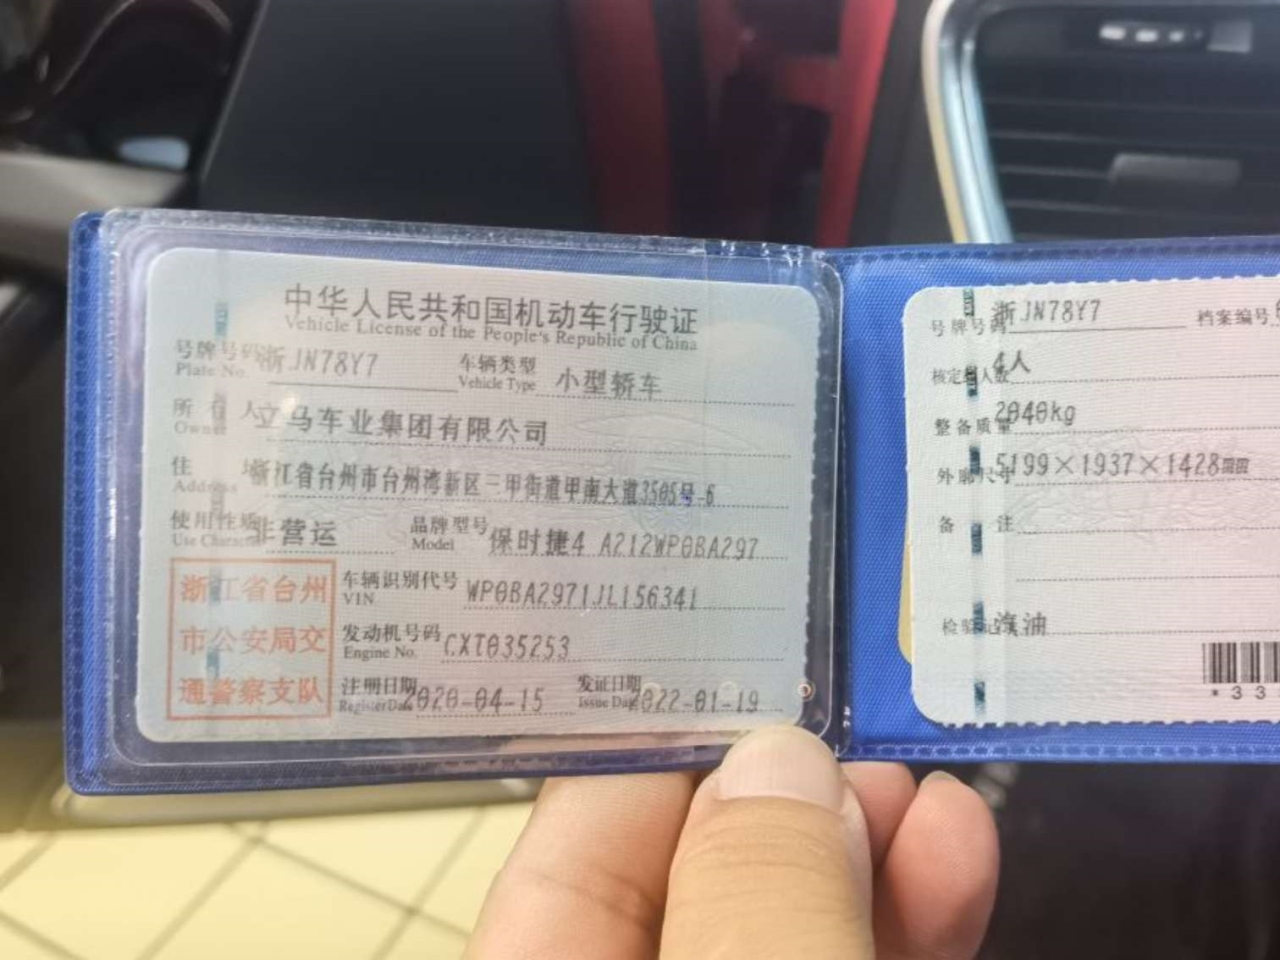 中华人民共和国机动车行驶证
Vehicle License of the People's Republic of China
号牌号码 浙JN78Y7 车辆类型 小型轿车
Plate No. Vehicle Type
所有人 立马车业集团有限公司
Owner
住址 浙江省台州市台州湾新区三甲街道甲南大道3505号-6
Address
使用性质 非营运 品牌型号 保时捷4 A212WP0BA297
Use Character Model
浙江省台州
市公安局交
通警察支队
车辆识别代号 WP0BA2971JL156341
VIN
发动机号码 CXT035253
Engine No.
注册日期 2020-04-15 发证日期 2022-01-19
Register Date Issue Date
号牌号码 浙JN78Y7 档案编号
核定载人数 4人
整备质量 2040kg
外廓尺寸 5199×1937×1428mm
备注
检验记录 汽油
*33